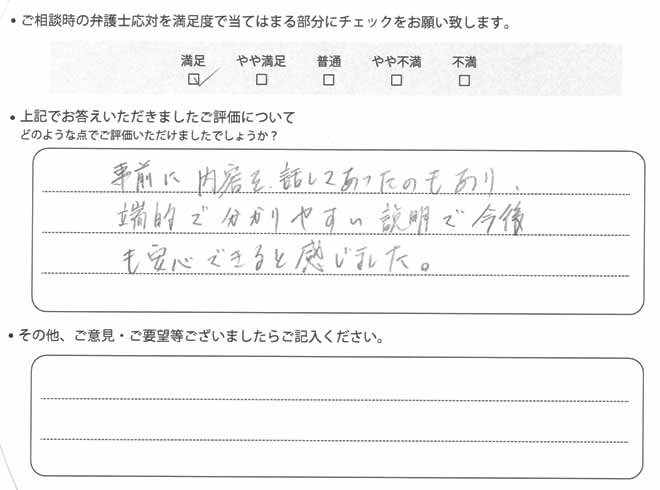 • ご相談時の弁護士応対を満足度で当てはまる部分にチェックをお願い致します。
満足 やや満足 普通 やや不満 不満
• 上記でお答えいただきましたご評価について
どのような点でご評価いただけましたでしょうか？
事前に内容を話してあったのもあり、
端的で分かりやすい説明で今後
も安心できると感じました。
• その他、ご意見・ご要望等ございましたらご記入ください。